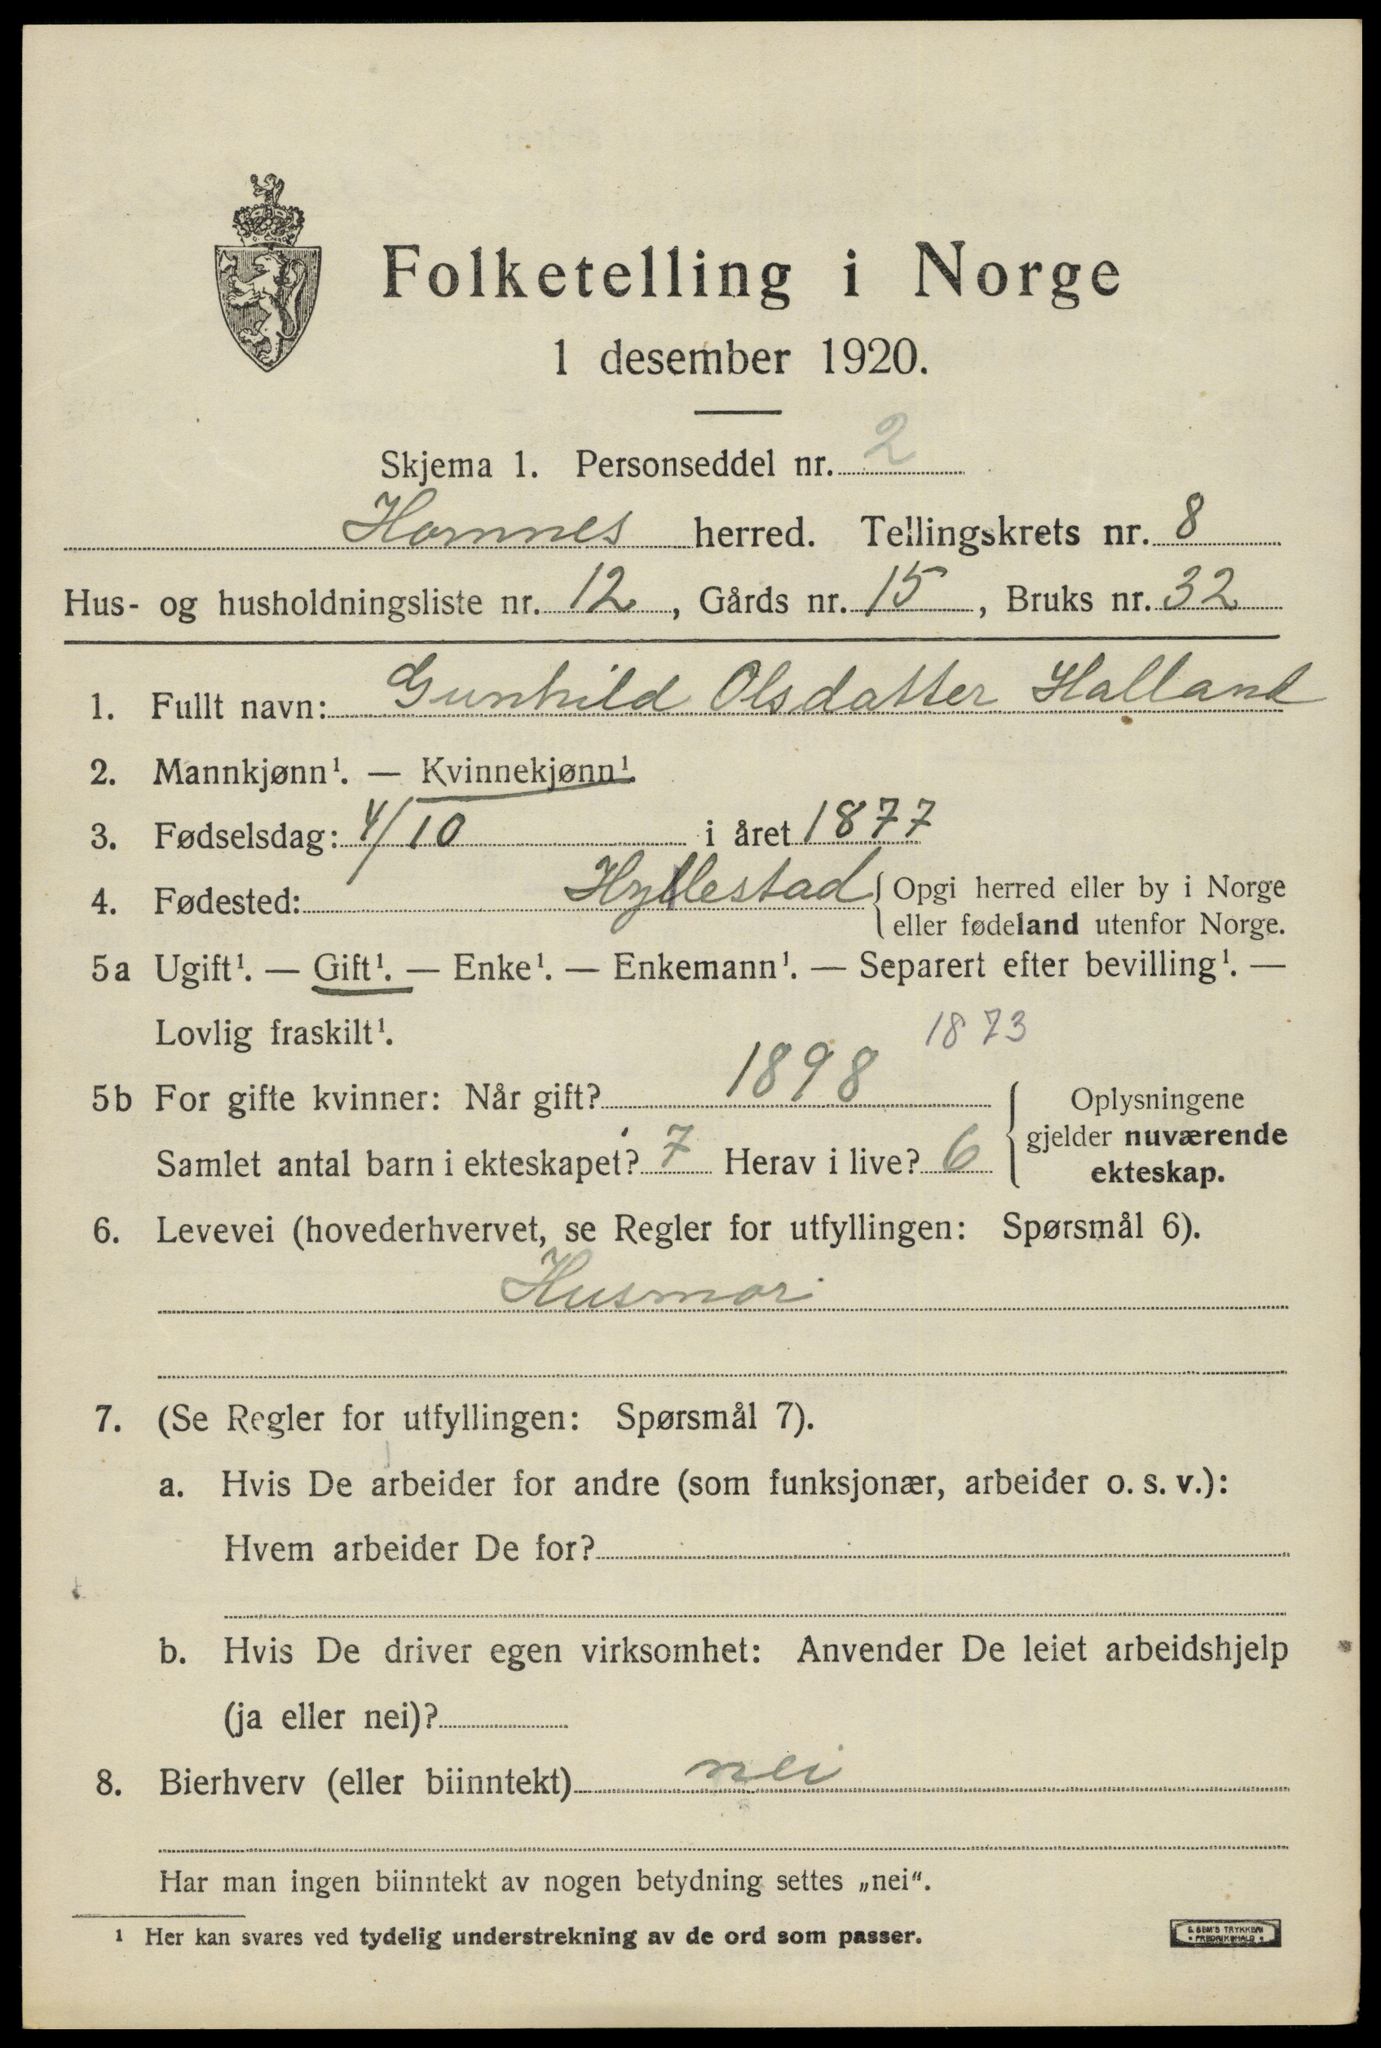 Folketelling i Norge
1 desember 1920.
Skjema 1. Personseddel nr. 2
Hornnes herred. Tellingskrets nr. 8
Hus- og husholdningsliste nr. 12, Gårds nr. 15, Bruks nr. 32
1. Fullt navn: Gunhild Olsdatter Halland
2. Mannkjønn¹. — Kvinnekjønn¹.
3. Fødselsdag: 4/10 i året 1877
4. Fødested: Hyllestad { Opgi herred eller by i Norge
eller fødeland utenfor Norge.
5a Ugift¹. — Gift¹. — Enke¹. — Enkemann¹. — Separert efter bevilling¹. —
Lovlig fraskilt¹. 1873
5b For gifte kvinner: Når gift? 1898 { Oplysningene
gjelder nuværende
Samlet antal barn i ekteskapet? 7 Herav i live? 6
ekteskap.
6. Levevei (hovederhvervet, se Regler for utfyllingen: Spørsmål 6).
Husmor
7. (Se Regler for utfyllingen: Spørsmål 7).
a. Hvis De arbeider for andre (som funksjonær, arbeider o. s. v.):
Hvem arbeider De for?
b. Hvis De driver egen virksomhet: Anvender De leiet arbeidshjelp
(ja eller nei)?
8. Bierhverv (eller biinntekt) nei
Har man ingen biinntekt av nogen betydning settes „nei“.
¹ Her kan svares ved tydelig understrekning av de ord som passer.
E. SEM'S TRYKKERI
FREDRIKSHALD